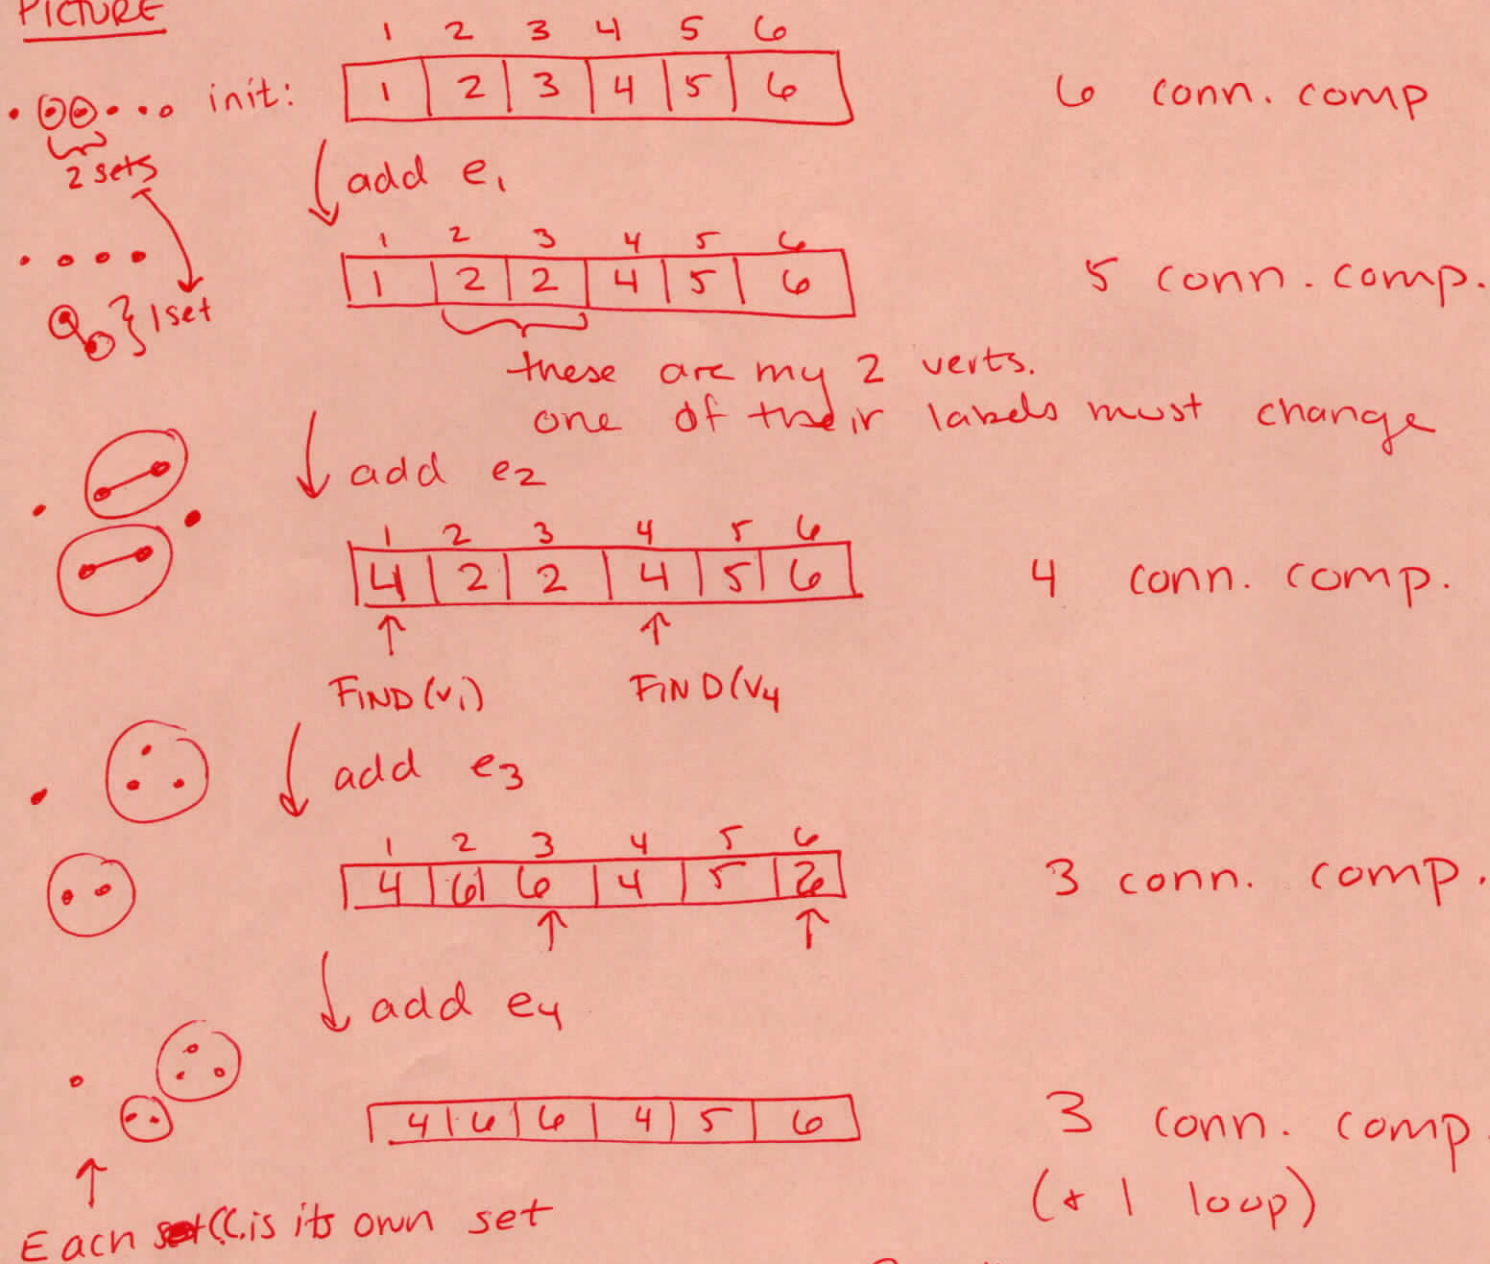 PICTURE
1 2 3 4 5 6
init: 1 2 3 4 5 6 6 conn. comp
2 sets
add e1
1 2 3 4 5 6
1 2 2 4 5 6 5 conn. comp.
1 set
these are my 2 verts.
one of their labels must change
add e2
1 2 3 4 5 6
4 2 2 4 5 6 4 conn. comp.
FIND(v1) FIND(v4
add e3
1 2 3 4 5 6
4 6 6 4 5 3 conn. comp.
add e4
4 6 6 4 5 6 3 conn. comp.
(+ 1 loop)
Each CC is its own set